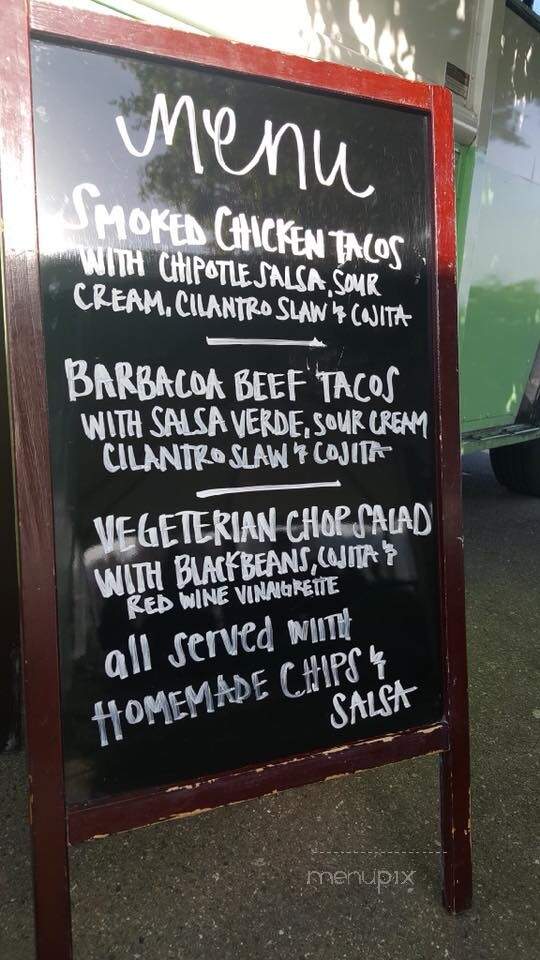 menu
SMOKED CHICKEN TACOS
WITH CHIPOTLE SALSA, SOUR
CREAM, CILANTRO SLAW & COJITA
BARBACOA BEEF TACOS
WITH SALSA VERDE, SOUR CREAM
CILANTRO SLAW & COJITA
VEGETERIAN CHOP SALAD
WITH BLACKBEANS, COJITA &
RED WINE VINAIGRETTE
all served with
HOMEMADE CHIPS &
SALSA
menupix